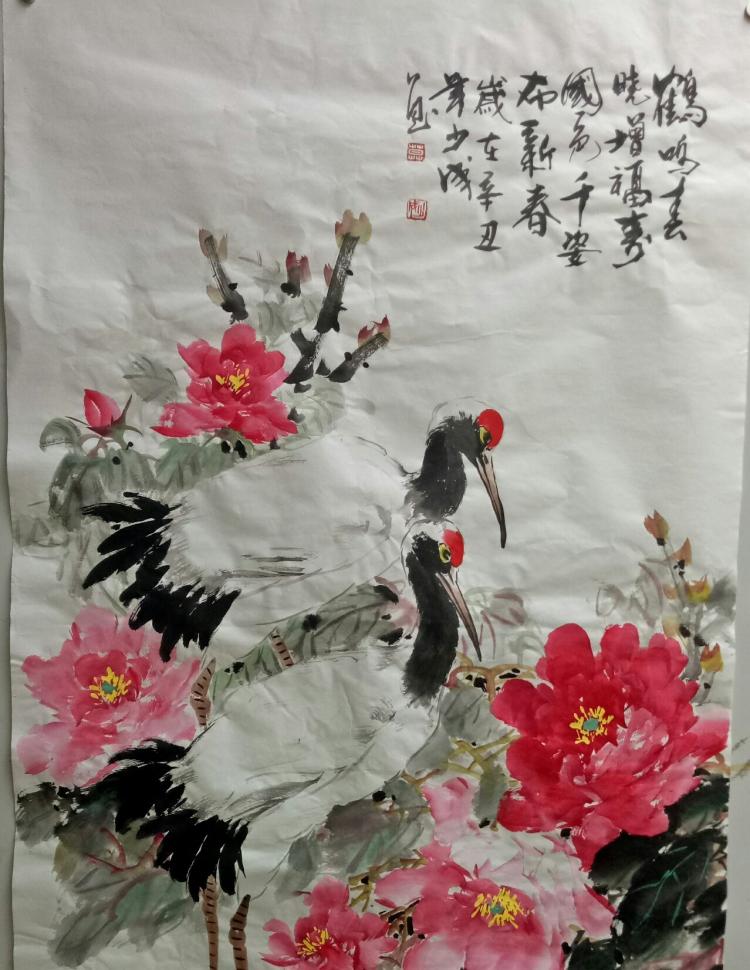 鶴鳴春
曉增福壽
國色千姿
布新春
歲在辛丑
年少成